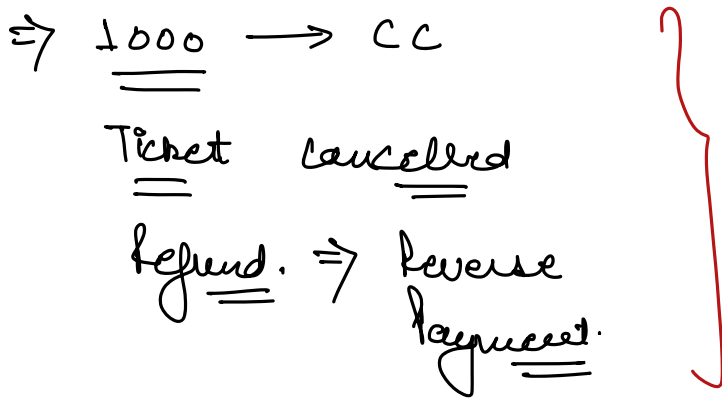 ⇒ 1000 → CC
Ticket cancelled
Refund. ⇒ Reverse
Payment.